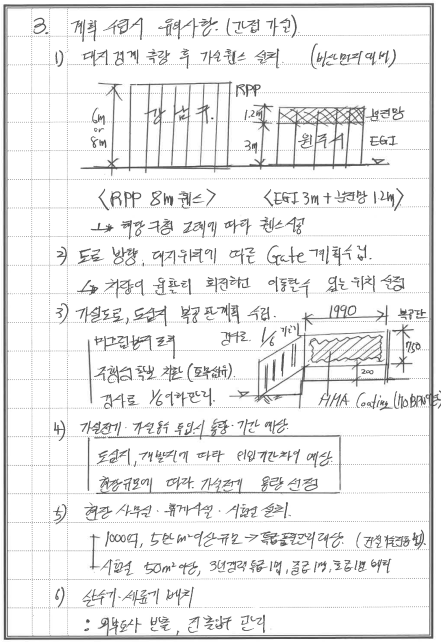 3. 계획 수립시 유의사항. (간접 가설)
1) 대지경계 측량 후 가설휀스 설치. (비산먼지 대비)
RPP
6m
or
8m
강남구.
1.2m
분진망
원주시
3m
EGI
<RPP 8m 휀스> <EGI 3m + 분진망 1.2m>
↳ 해당 구청 조례에 따라 휀스 설치
2) 도로 방향, 대지위치에 따른 Gate 계획수립.
↳ 차량이 원활히 회전하고 이동할수 있는 위치 선정
3) 가설도로, 도심지 복공판계획 수립.
1990
복공판
미끄럼방지 조치
경사로 1/6
750
주행성 확보
200
경사로 1/6이하관리
HHA Coating
4) 가설전기·가설용수 투입시 용량·기간 예상.
도심지, 개발지에 따라 인입기간차이 예상
현장규모에 따라 가설전기 용량 선정
5) 현장 사무실·휴게시설·시험실 설치.
1000억, 5만m²이상규모 → 특급품질관리대상
시험실 50m²이상, 3년경력 특급1명, 중급1명, 초급1명 배치
6) 살수기·세륜기 배치
: 외부토사 반출, 진출입구 관리